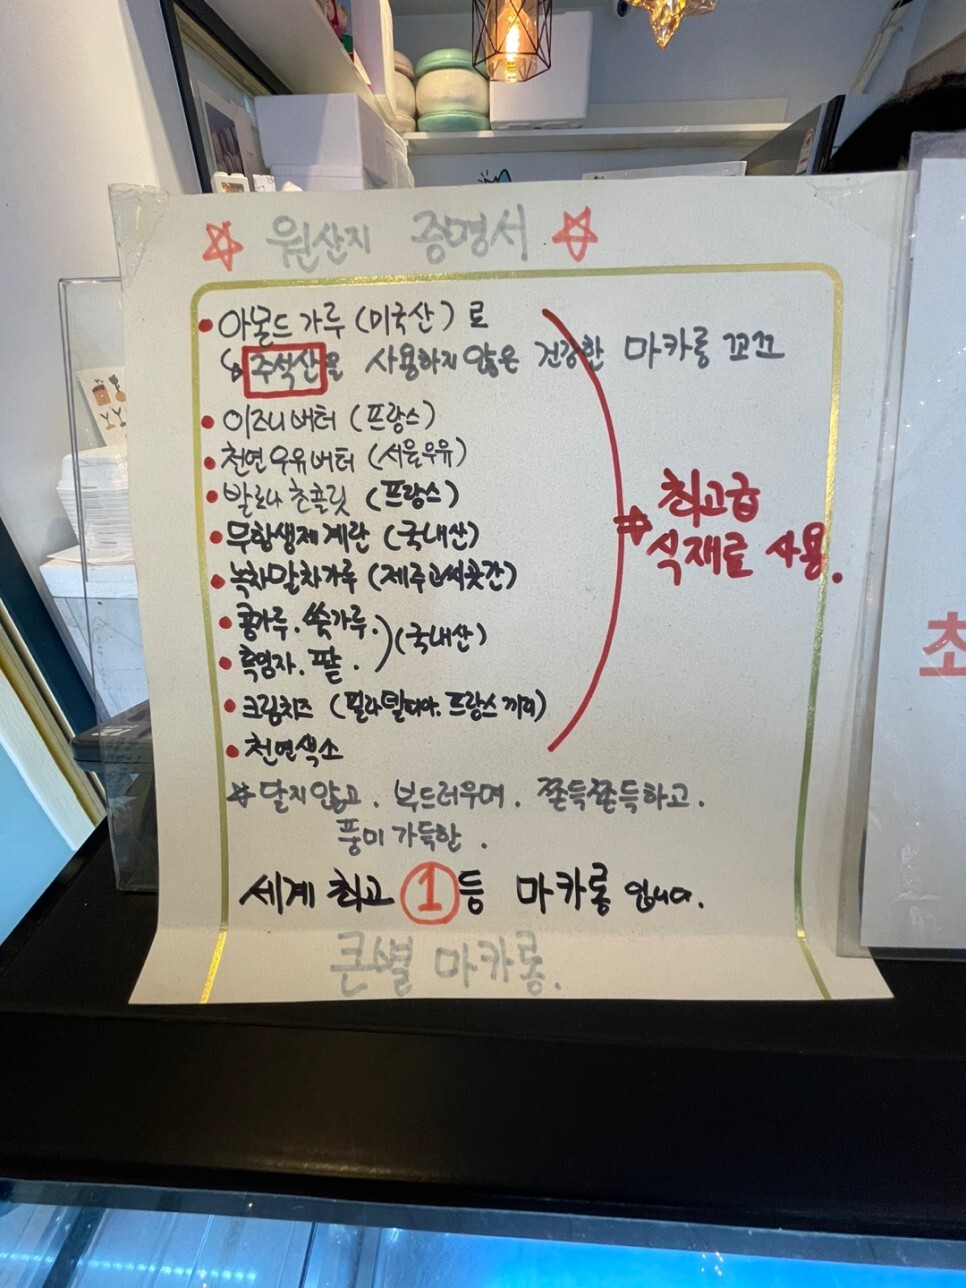 ☆ 원산지 증명서 ☆
• 아몬드 가루 (미국산) 로
↳ 주석산을 사용하지 않은 건강한 마카롱 꼬끄
• 이즈니 버터 (프랑스)
• 천연우유버터 (서울우유)
• 발로나 초콜릿 (프랑스)
• 무항생제 계란 (국내산)
• 녹차말차가루 (제주 곶간)
• 콩가루. 쑥가루.
• 흑임자. 팥.
(국내산)
• 크림치즈 (필라델피아. 프랑스 끼리)
• 천연색소
⇒ 최고급
식재료 사용.
달지않고. 부드러우며. 쫀득쫀득하고.
풍미 가득한.
세계 최고 1등 마카롱 입니다.
큰별 마카롱.